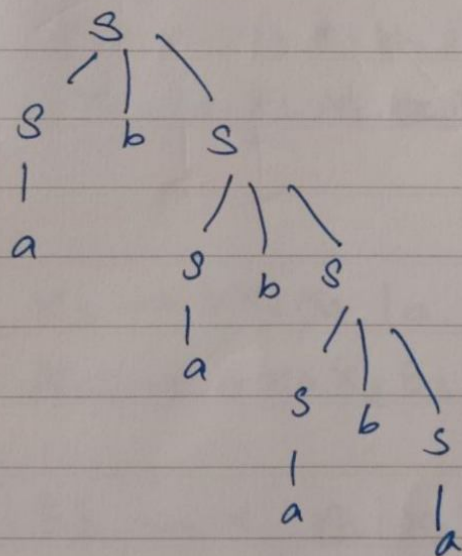 S
S b S
a
S b S
a
S b S
a a